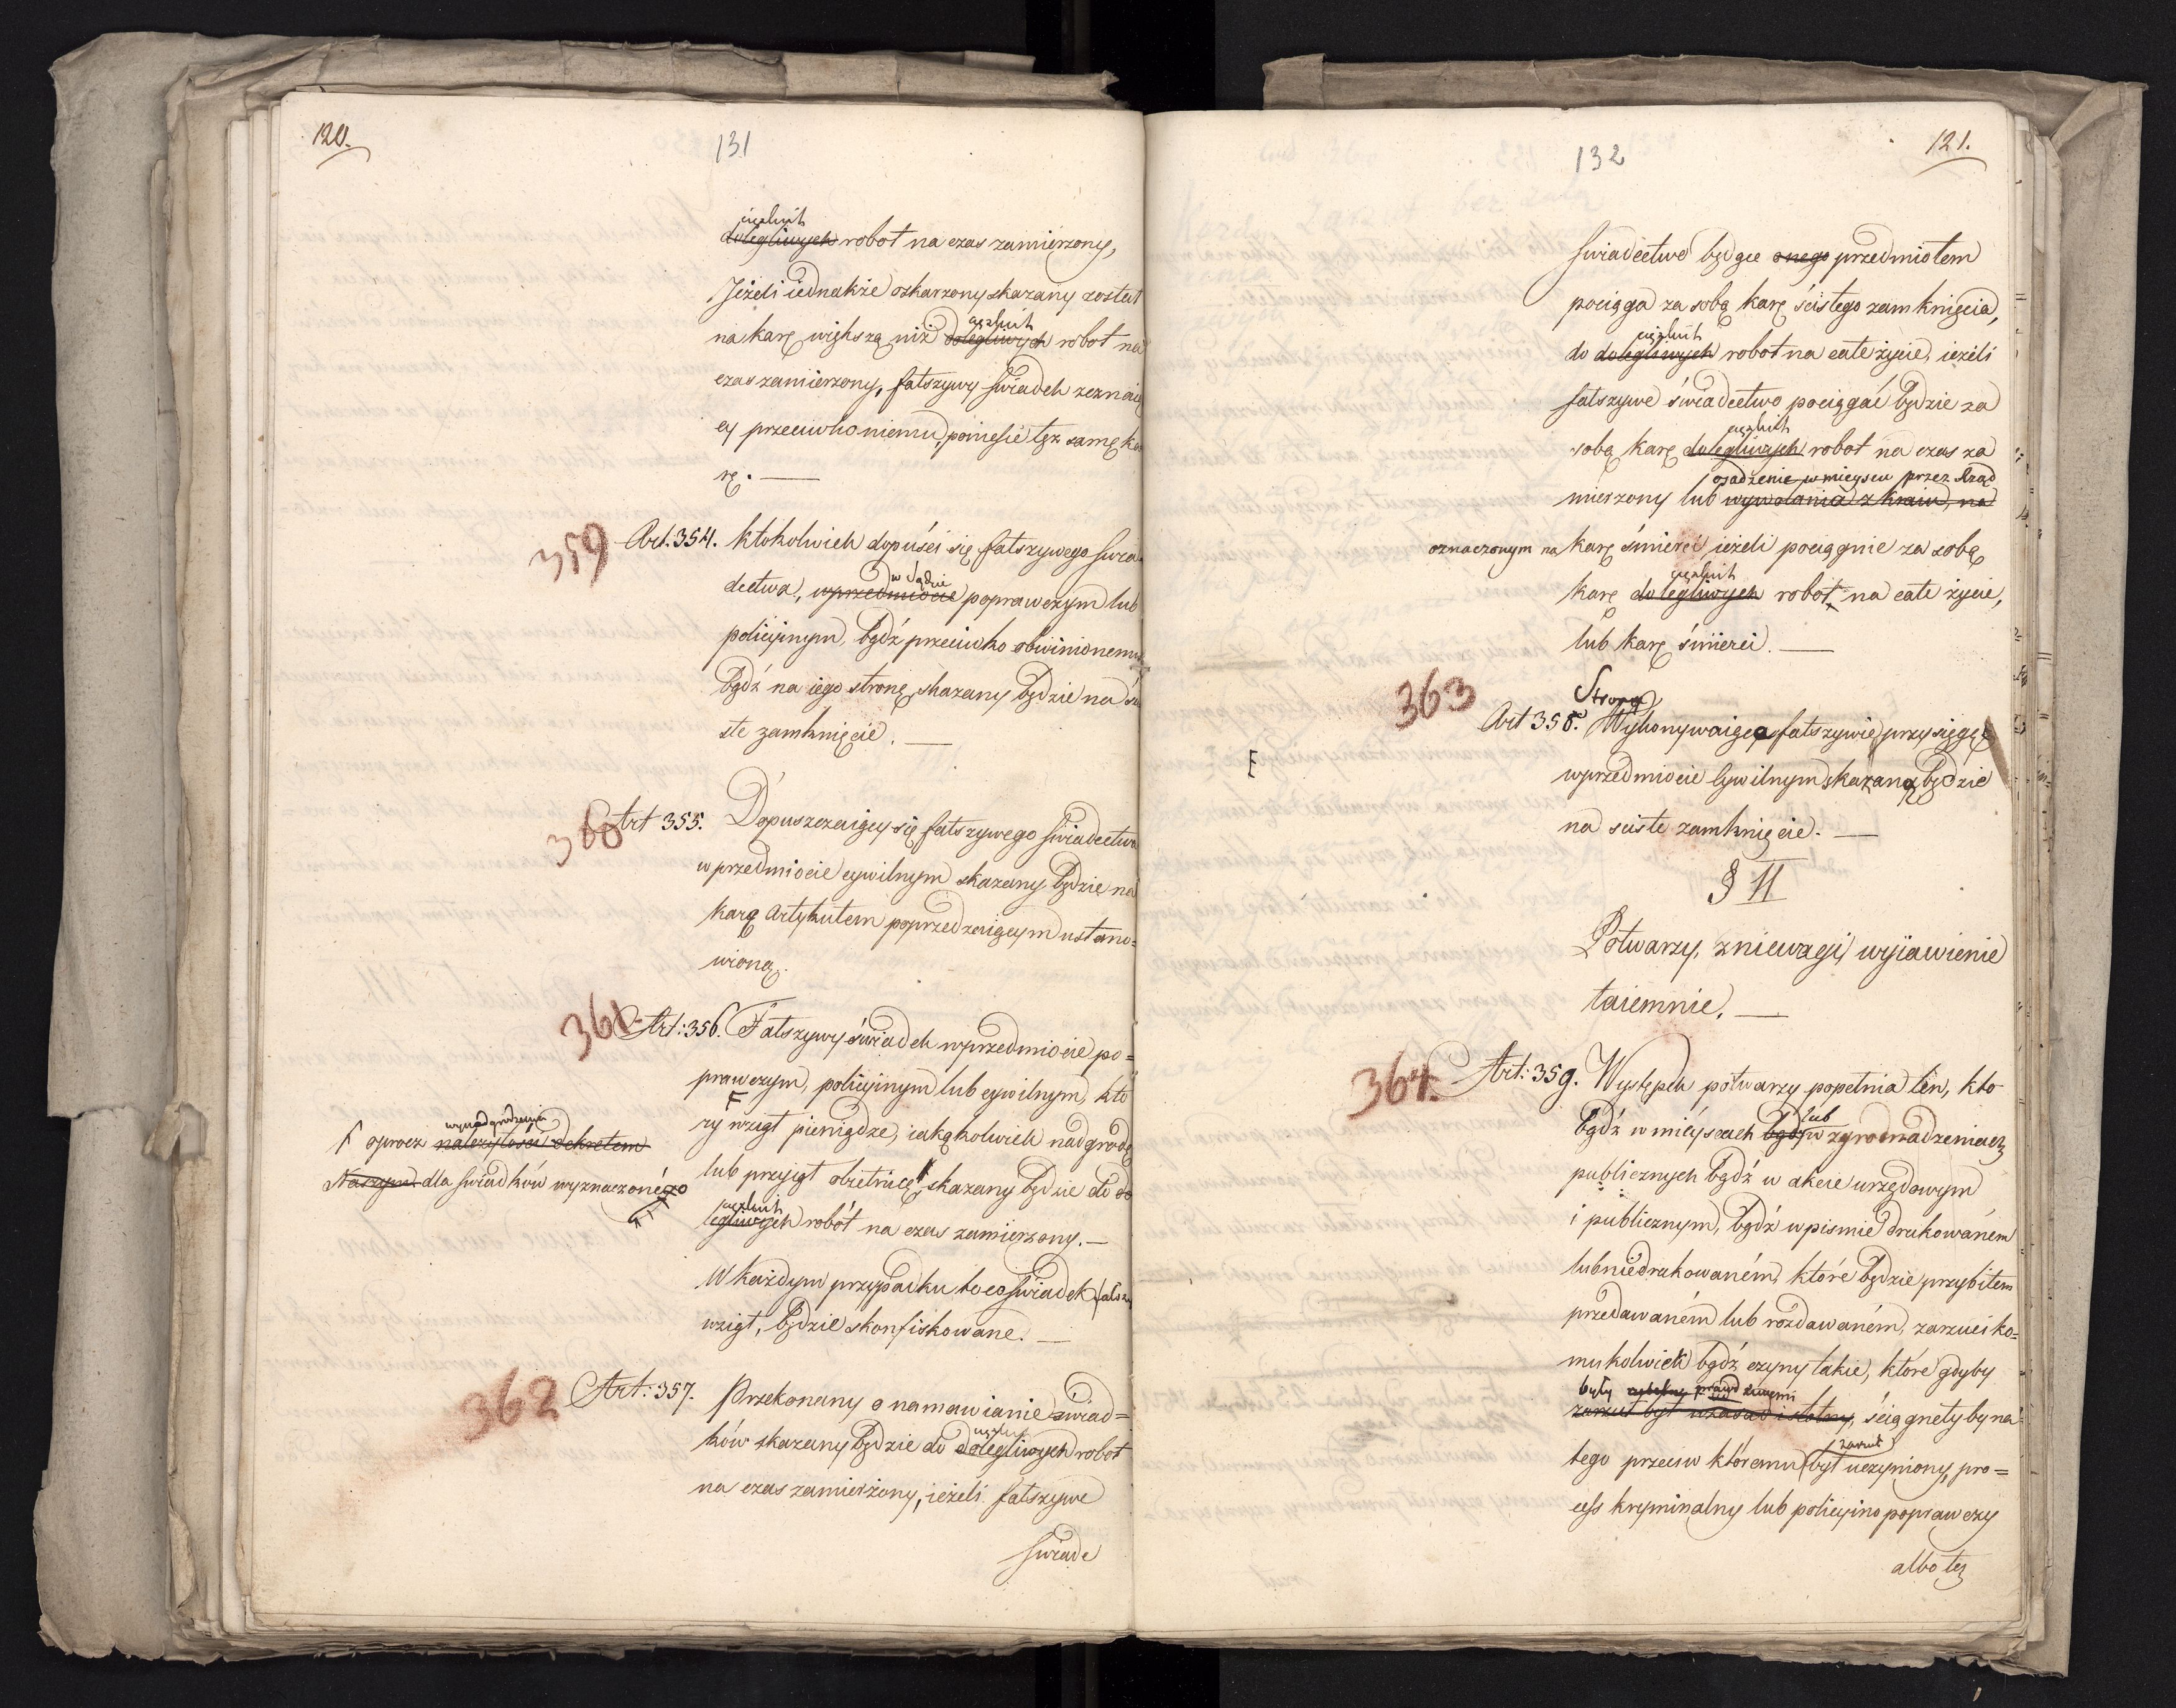 120.
131
ciężkich
dolegliwych robot na czas zamierzony,
Jeżeli iednakże oskarzony skazany został
ciężkich
na karę większą niż dolegliwych robot na
czas zamierzony, fałszywy świadek zeznaią
cy przeciwko niemu, poniesie tęż samę ka
rę. —
359
Art. 354. Ktokolwiek dopuści się fałszywego świa
w Sądzie
dectwa, w przedmiocie poprawczym lub
policyinym, bądź przeciwko obwinionemu
bądź na iego stronę, skazany będzie na ści
słe zamknięcie. —
360
Art 355. Dopuszczaiący się fałszywego świadectwa
w przedmiocie cywilnym skazany będzie na
karę Artykułem poprzedzaiącym ustano=
wioną.
361
Art: 356. Fałszywy świadek w przedmiocie po=
prawczym, policyinym lub cywilnym, któ
ry wziął pieniądze, iakąkolwiek nadgrodę
lub przyjął obietnicę, skazany będzie do do
ciężkich
legliwych robót na czas zamierzony. —
W każdym przypadku to co świadek fałszy
wziął, będzie skonfiskowane. —
wynadgrodzenia
F oprocz należytości dekretem
Naszym dla świadków wyznaczonego
362
Art: 357. Przekonany o namawianie świad=
ciężkich
ków skazany będzie do dolegliwych robot
na czas zamierzony, ieżeli fałszywe
świade
132
121.
świadectwo będące onego przedmiotem
pociąga za sobą karę ścisłego zamknięcia,
ciężkich
do dolegliwych robot na całe życie, ieżeli
fałszywe świadectwo pociągać będzie za
ciężkich
sobą karę dolegliwych robot na czas za
osadzenie w mieyscu przez Rząd
mierzony lub wywołania z kraiu, na
oznaczonym na karę śmierci, ieżeli pociągnie za sobą
ciężkich
karę dolegliwych robot na całe życie,
lub karę śmierci. —
363
Strona
Art 358. Wykonywaiąca fałszywie przysięgę
w przedmiocie cywilnym skazaną będzie
na ścisłe zamknięcie. —
§ II
Potwarzy, zniewagi, wyiawienie
taiemnic. —
364.
Art: 359. Występek potwarzy popełnia ten, kto
lub
bądź w mieyscach bądź w zgromadzeniach
publicznych bądź w akcie urzędowym
i publicznym, bądź w pismie drukowaném
lub niedrukowaném, które będzie przybitem
przedawaném lub rozdawaném, zarzuci ko=
mukolwiek bądź czyny takie, które gdyby
były prawdziwymi
zarzut był w zasad istotny, ściągnęłyby na
zarzut
tego przeciw któremu był uczyniony, pro=
cess kryminalny lub policyino poprawczy
albo też